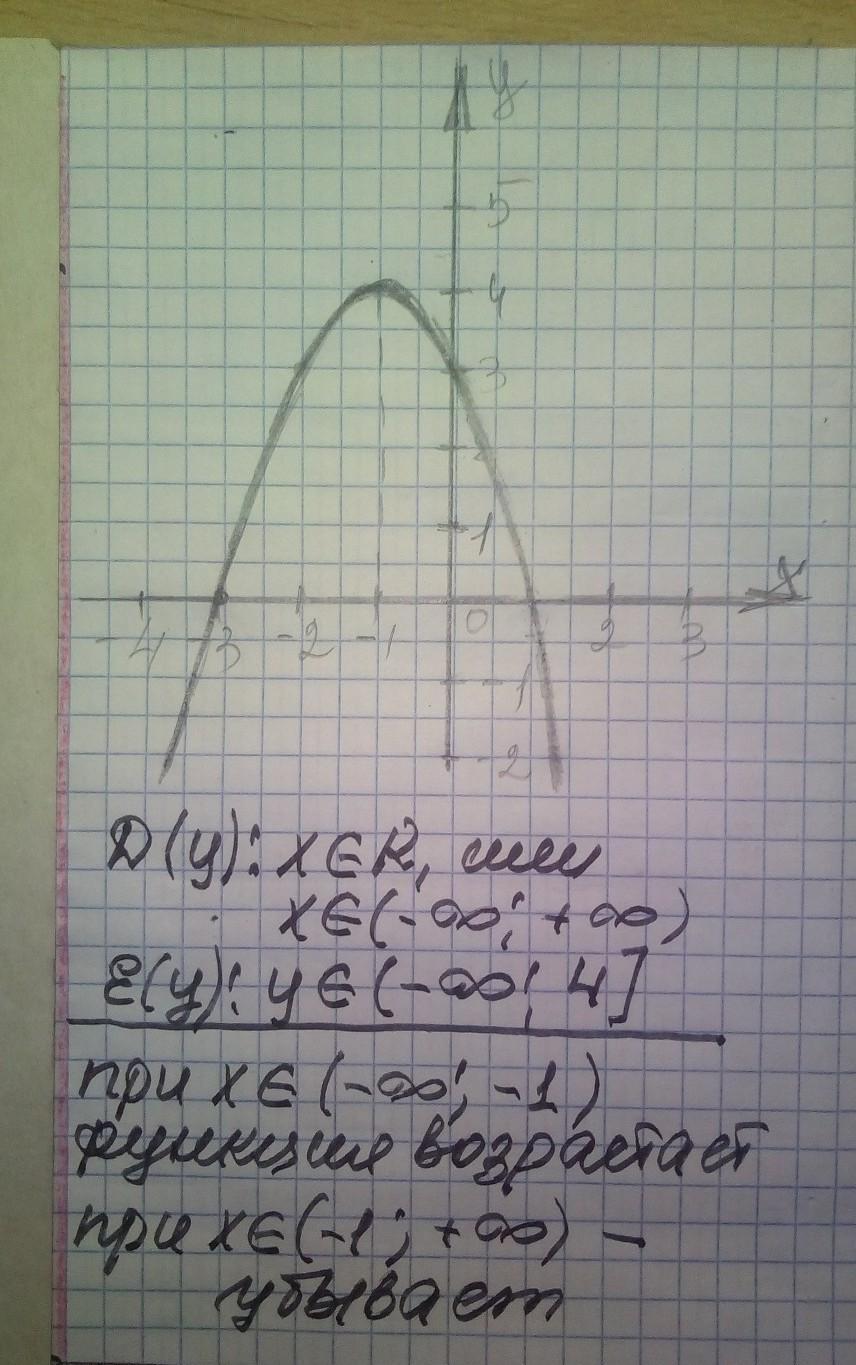 y
5
4
3
2
1
x
-4 -3 -2 -1 0 2 3
-1
-2
D(y): x∈R, или
x∈(-∞; +∞)
E(y): y∈(-∞; 4]
при x∈(-∞; -1)
функция возрастает
при x∈(-1; +∞) –
убывает